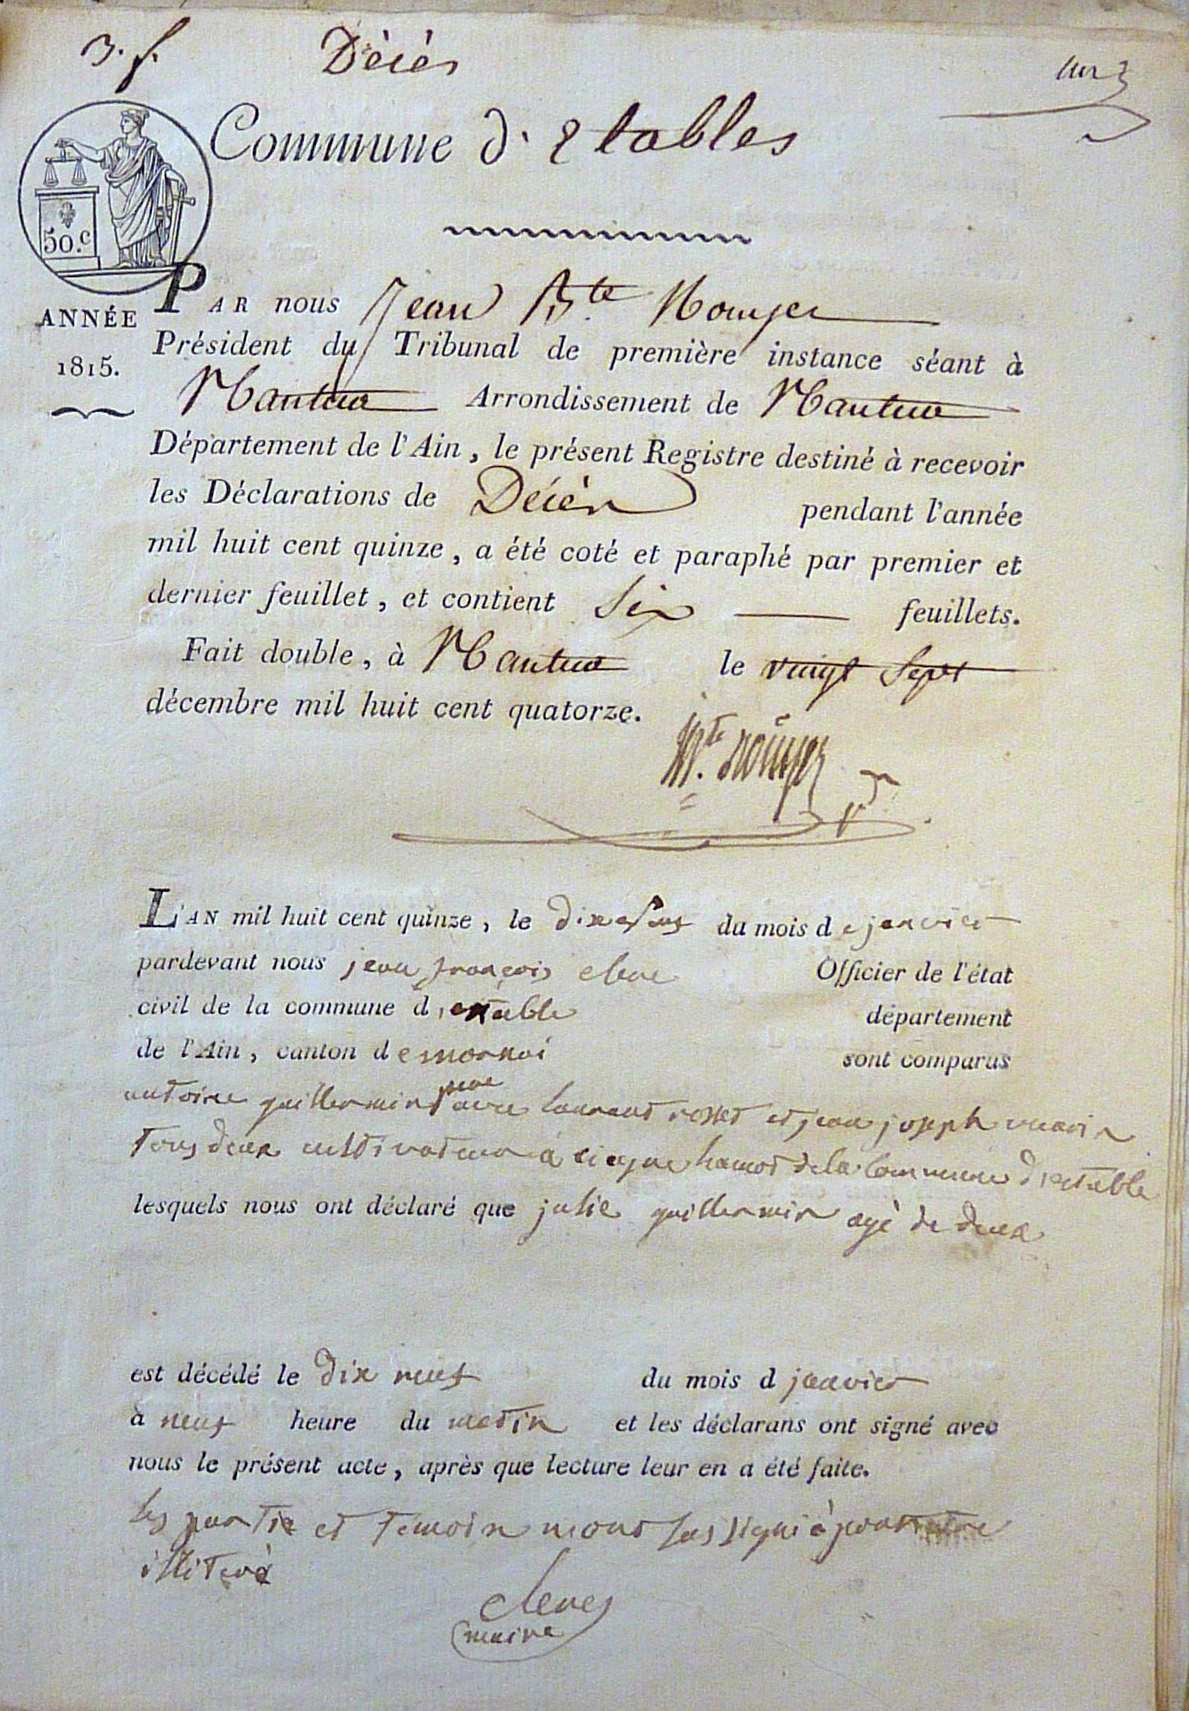 3. f. Décès
Commune d'Etables
50.c
ANNÉE
1815.
PAR nous Jean Bte Nouyer
Président du Tribunal de première instance séant à
Nantua Arrondissement de Nantua
Département de l'Ain, le présent Registre destiné à recevoir
les Déclarations de Décès pendant l'année
mil huit cent quinze, a été coté et paraphé par premier et
dernier feuillet, et contient Six feuillets.
Fait double, à Nantua le vingt Sept
décembre mil huit cent quatorze.
Bte nouyer
L'AN mil huit cent quinze, le du mois de janvier
pardevant nous jean françois cleve Officier de l'état
civil de la commune d'etable département
de l'Ain, canton de sont comparus
antoine guillermin pere avec laurant rosset et jean joseph
Tous deux cultivateur à hamot de la Commune d'estable
lesquels nous ont déclaré que julie guillermin agé de deux
est décédé le dix neuf du mois d janvier
à neuf heure du matin et les déclarans ont signé avec
nous le présent acte, après que lecture leur en a été faite.
les partie et temoin mont pas signé pour etre
illiteré
cleves
maire